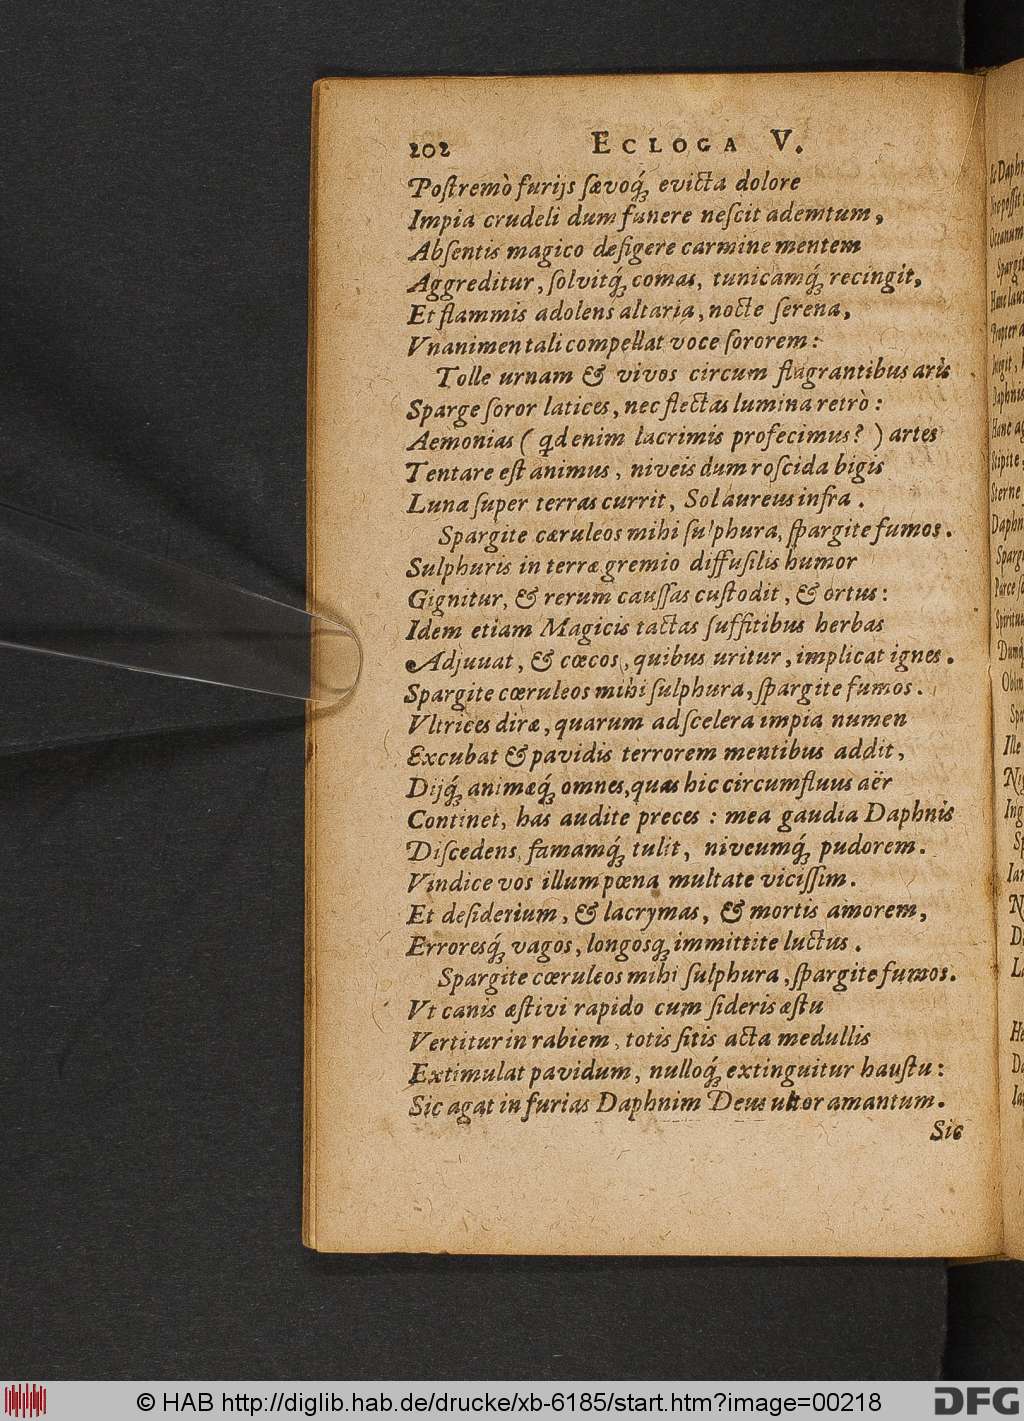 202 ECLOGA V.
Poſtremò furijs ſævoq́ꝫ evicta dolore
Impia crudeli dum funere neſcit ademtum,
Abſentis magico defigere carmine mentem
Aggreditur, ſolvitq́ꝫ comas, tunicamq́ꝫ recingit,
Et flammis adolens altaria, nocte ſerena,
Vnanimen tali compellat voce ſororem:
Tolle urnam & vivos circum flagrantibus aris
Sparge ſoror latices, nec flectas lumina retrò:
Aemonias ( qd enim lacrimis profecimus? ) artes
Tentare eſt animus, niveis dum roſcida bigis
Luna ſuper terras currit, Sol aureus infra.
Spargite cæruleos mihi ſulphura, ſpargite fumos.
Sulphuris in terræ gremio diffuſilis humor
Gignitur, & rerum cauſſas cuſtodit, & ortus:
Idem etiam Magicis tactas ſuffitibus herbas
Adjuuat, & cœcos, quibus uritur, implicat ignes.
Spargite cœruleos mihi ſulphura, ſpargite fumos.
Vltrices diræ, quarum ad ſcelera impia numen
Excubat & pavidis terrorem mentibus addit,
Dijq́ꝫ animæq́ꝫ omnes, quas hic circumfluus aër
Continet, has audite preces: mea gaudia Daphnis
Diſcedens, famamq́ꝫ tulit, niveumq́ꝫ pudorem.
Vindice vos illum pœna multate viciſſim.
Et deſiderium, & lacrymas, & mortis amorem,
Erroresq́ꝫ vagos, longosqꝫ immittite luctus.
Spargite cœruleos mihi ſulphura, ſpargite fumos.
Vt canis æſtivi rapido cum ſideris æſtu
Vertitur in rabiem, totis ſitis acta medullis
Extimulat pavidum, nulloq́ꝫ extinguitur hauſtu:
Sic agat in furias Daphnim Deus ultor amantum.
Sic
© HAB http://diglib.hab.de/drucke/xb-6185/start.htm?image=00218
DFG